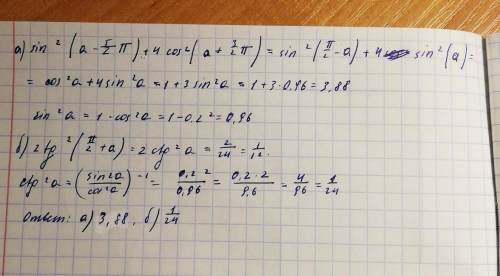 а) sin² (a - 5/2 π) + 4 cos² (a + 3/2 π) = sin² (π/2 - a) + 4 sin² (a) =
= cos²a + 4 sin²a = 1 + 3 sin²a = 1 + 3·0,96 = 3,88
sin²a = 1 - cos²a = 1 - 0,2² = 0,96
б) 2 tg² (π/2 + a) = 2 ctg²a = 2/24 = 1/12.
ctg²a = (sin²a/cos²a)⁻¹ = 0,2²/0,96 = 0,2·2/9,6 = 4/96 = 1/24
Ответ: а) 3,88, б) 1/24